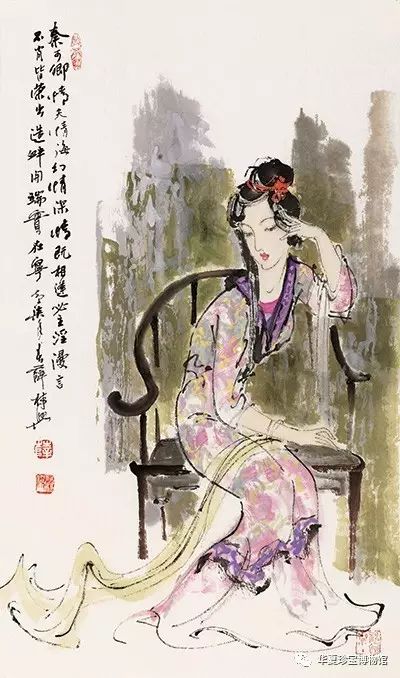 秦可卿情天情海幻情深情既相逢必主淫漫言
不肖皆榮出造衅開端實在寧 薛林興
华夏珍宝博物馆